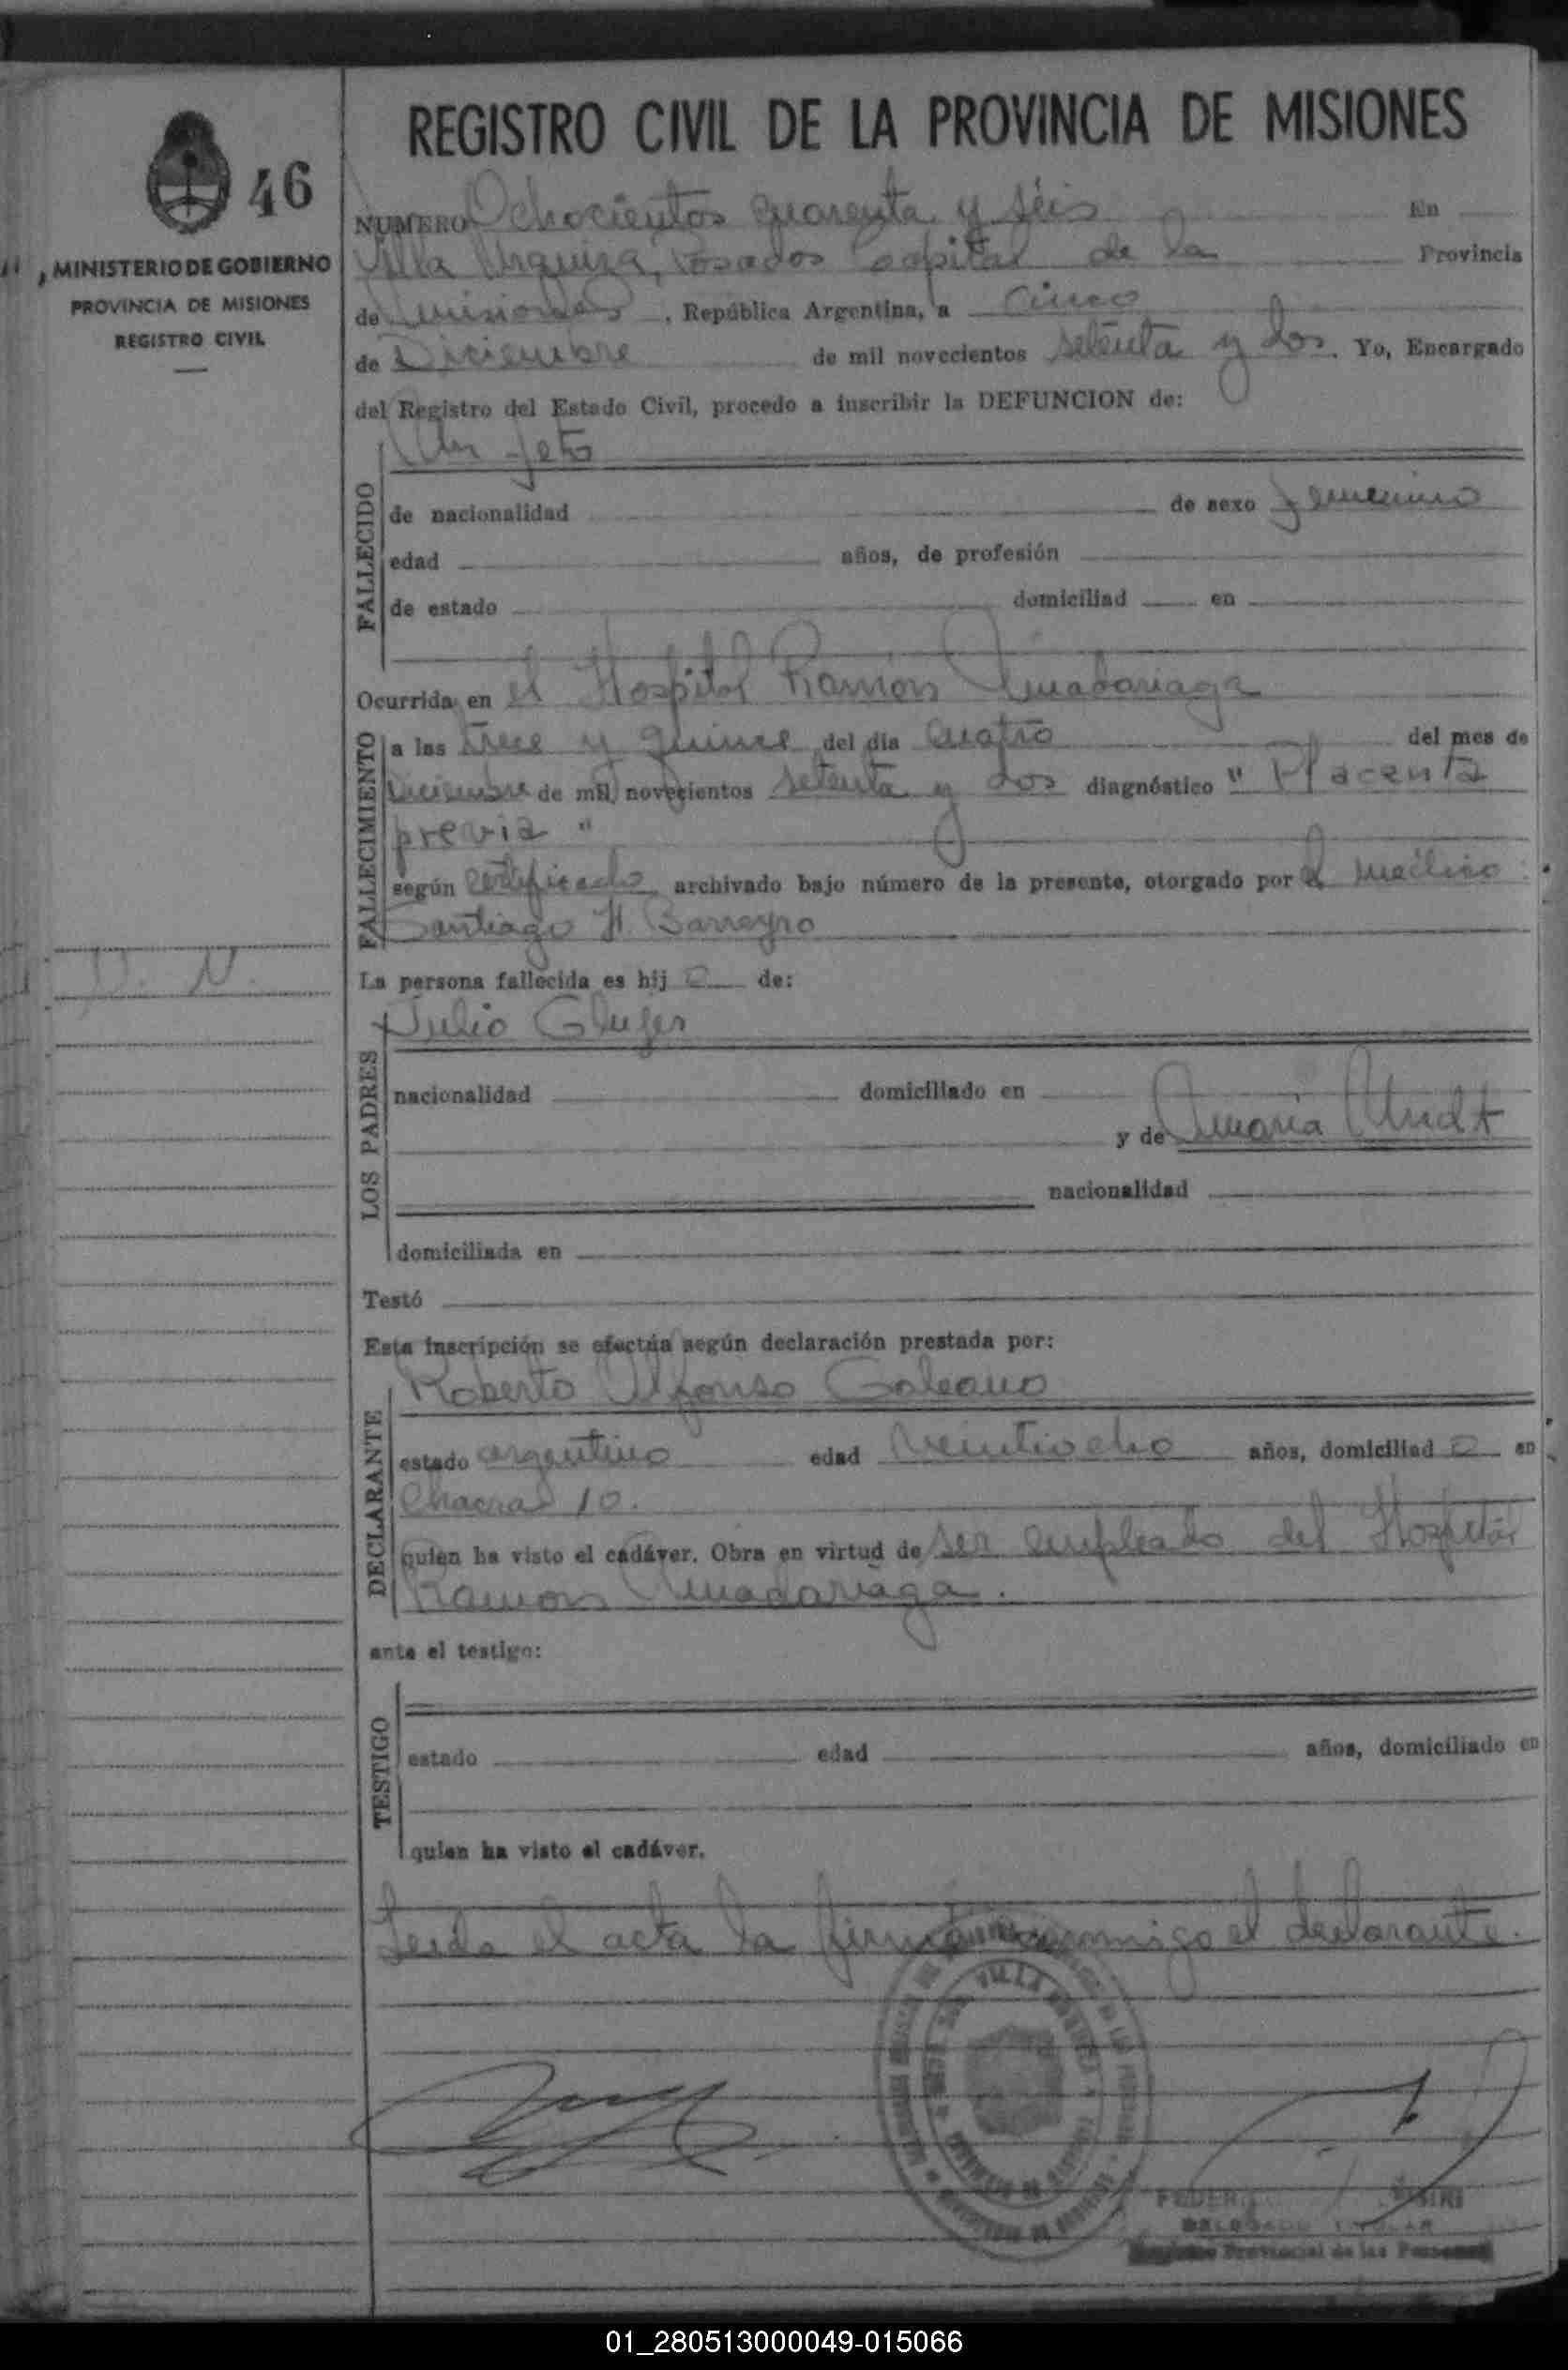 REGISTRO CIVIL DE LA PROVINCIA DE MISIONES
46
MINISTERIO DE GOBIERNO
PROVINCIA DE MISIONES
REGISTRO CIVIL
NUMERO Ochocientos quarenta y séis En
Villa Urquiza, Posadas Capital de la Provincia
de Misiones, República Argentina, a cinco
de Diciembre de mil novecientos setenta y dos. Yo, Encargado
del Registro del Estado Civil, procedo a inscribir la DEFUNCION de:
Un feto
FALLECIDO
de nacionalidad de sexo femenino
edad años, de profesión
de estado domiciliad en
Ocurrida en el Hospital Ramón Madariaga
FALLECIMIENTO
a las trece y quince del dia cuatro del mes de
Diciembre de mil novecientos setenta y dos diagnóstico "Placenta
previa"
según certificado archivado bajo número de la presente, otorgado por el médico
Santiago H. Barreyro
V. N.
La persona fallecida es hij o de:
Julio
LOS PADRES
nacionalidad domiciliado en
y de Maria
nacionalidad
domiciliada en
Testó
Esta inscripción se efectúa según declaración prestada por:
Roberto Alfonso Galeano
DECLARANTE
estado argentino edad veintiocho años, domiciliad o en
Chacra 10.
quien ha visto el cadáver. Obra en virtud de ser empleado del Hospital
Ramon Madariaga.
ante el testigo:
TESTIGO
estado edad años, domiciliado en
quien ha visto el cadáver.
Leida el acta la firma conmigo el declarante.
VILLA URQUIZA
DELEGADO TITULAR
Registro Provincial de las Personas
01_280513000049-015066